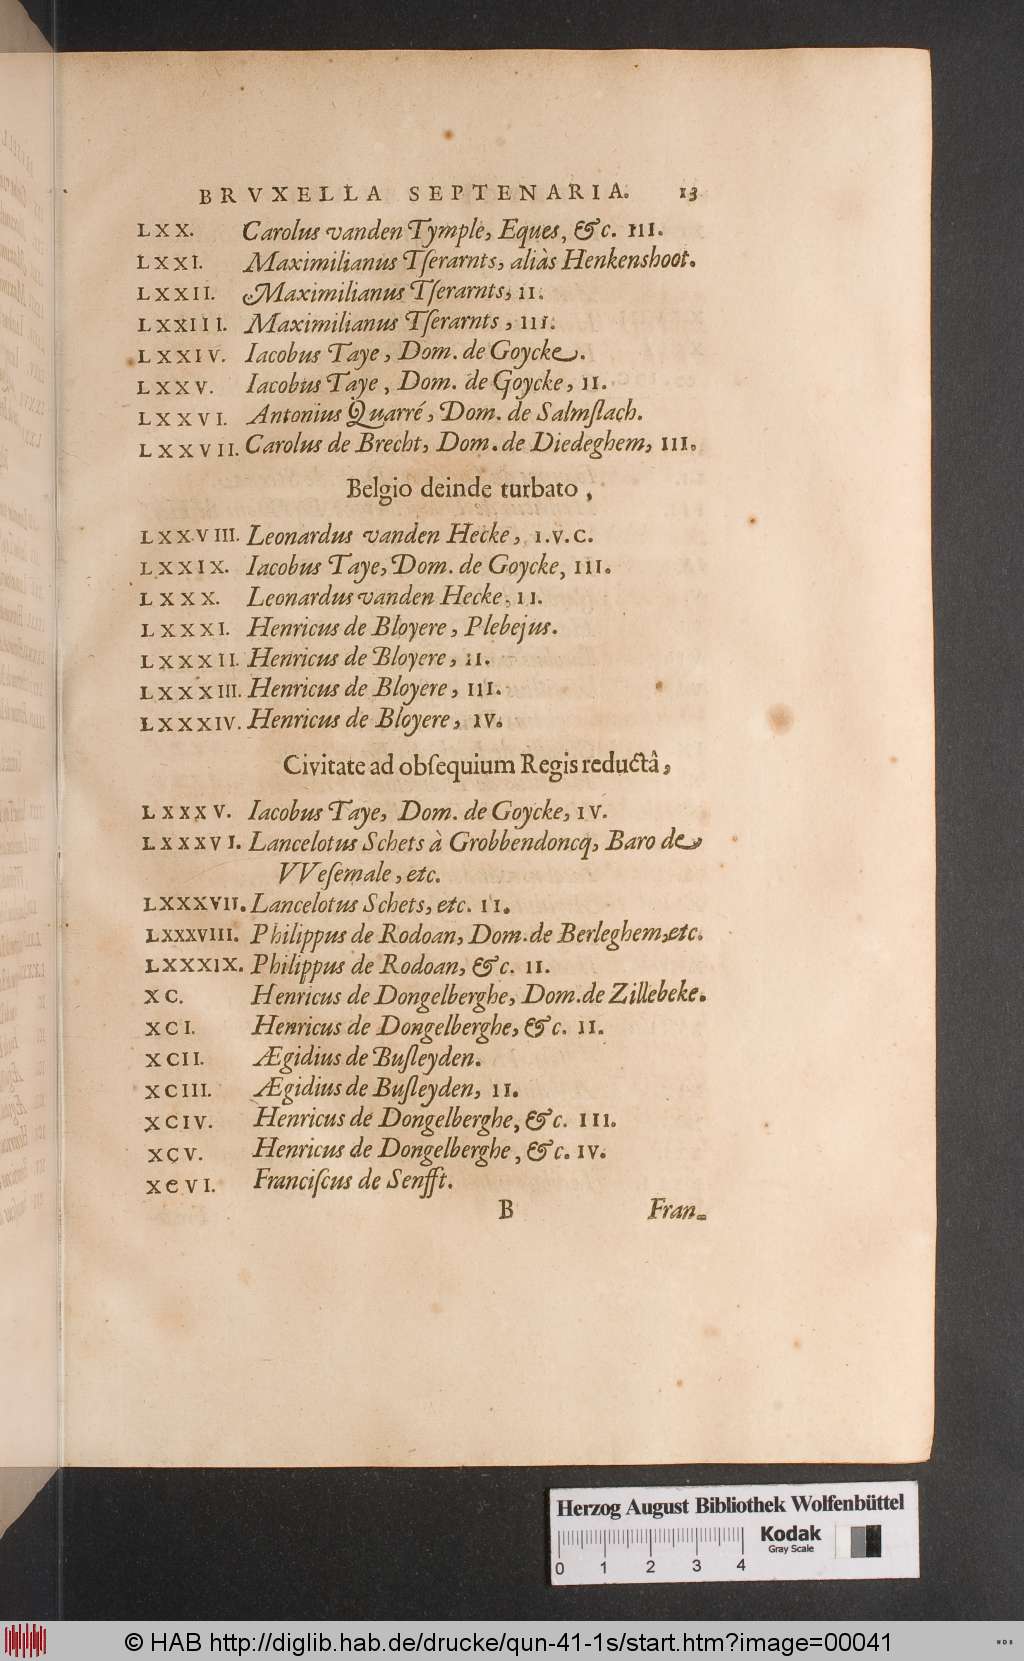 BRVXELLA SEPTENARIA. 13
LXX. Carolus vanden Tymple, Eques, &c. III.
LXXI. Maximilianus Tſerarnts, aliàs Henkenshoot.
LXXII. Maximilianus Tſerarnts, II.
LXXIII. Maximilianus Tſerarnts, III.
LXXIV. Iacobus Taye, Dom. de Goycke.
LXXV. Iacobus Taye, Dom. de Goycke, II.
LXXVI. Antonius Quarré, Dom. de Salmſlach.
LXXVII. Carolus de Brecht, Dom. de Diedeghem, III.
Belgio deinde turbato,
LXXVIII. Leonardus vanden Hecke, I.V.C.
LXXIX. Iacobus Taye, Dom. de Goycke, III.
LXXX. Leonardus vanden Hecke, II.
LXXXI. Henricus de Bloyere, Plebejus.
LXXXII. Henricus de Bloyere, II.
LXXXIII. Henricus de Bloyere, III.
LXXXIV. Henricus de Bloyere, IV.
Civitate ad obſequium Regis reductâ,
LXXXV. Iacobus Taye, Dom. de Goycke, IV.
LXXXVI. Lancelotus Schets à Grobbendoncq, Baro de
VVeſemale, etc.
LXXXVII. Lancelotus Schets, etc. II.
LXXXVIII. Philippus de Rodoan, Dom. de Berleghem, etc.
LXXXIX. Philippus de Rodoan, &c. II.
XC. Henricus de Dongelberghe, Dom. de Zillebeke.
XCI. Henricus de Dongelberghe, &c. II.
XCII. Ægidius de Buſleyden.
XCIII. Ægidius de Buſleyden, II.
XCIV. Henricus de Dongelberghe, &c. III.
XCV. Henricus de Dongelberghe, &c. IV.
XCVI. Franciſcus de Senfft.
B Fran-
Herzog August Bibliothek Wolfenbüttel
Kodak
Gray Scale
0 1 2 3 4
© HAB http://diglib.hab.de/drucke/qun-41-1s/start.htm?image=00041